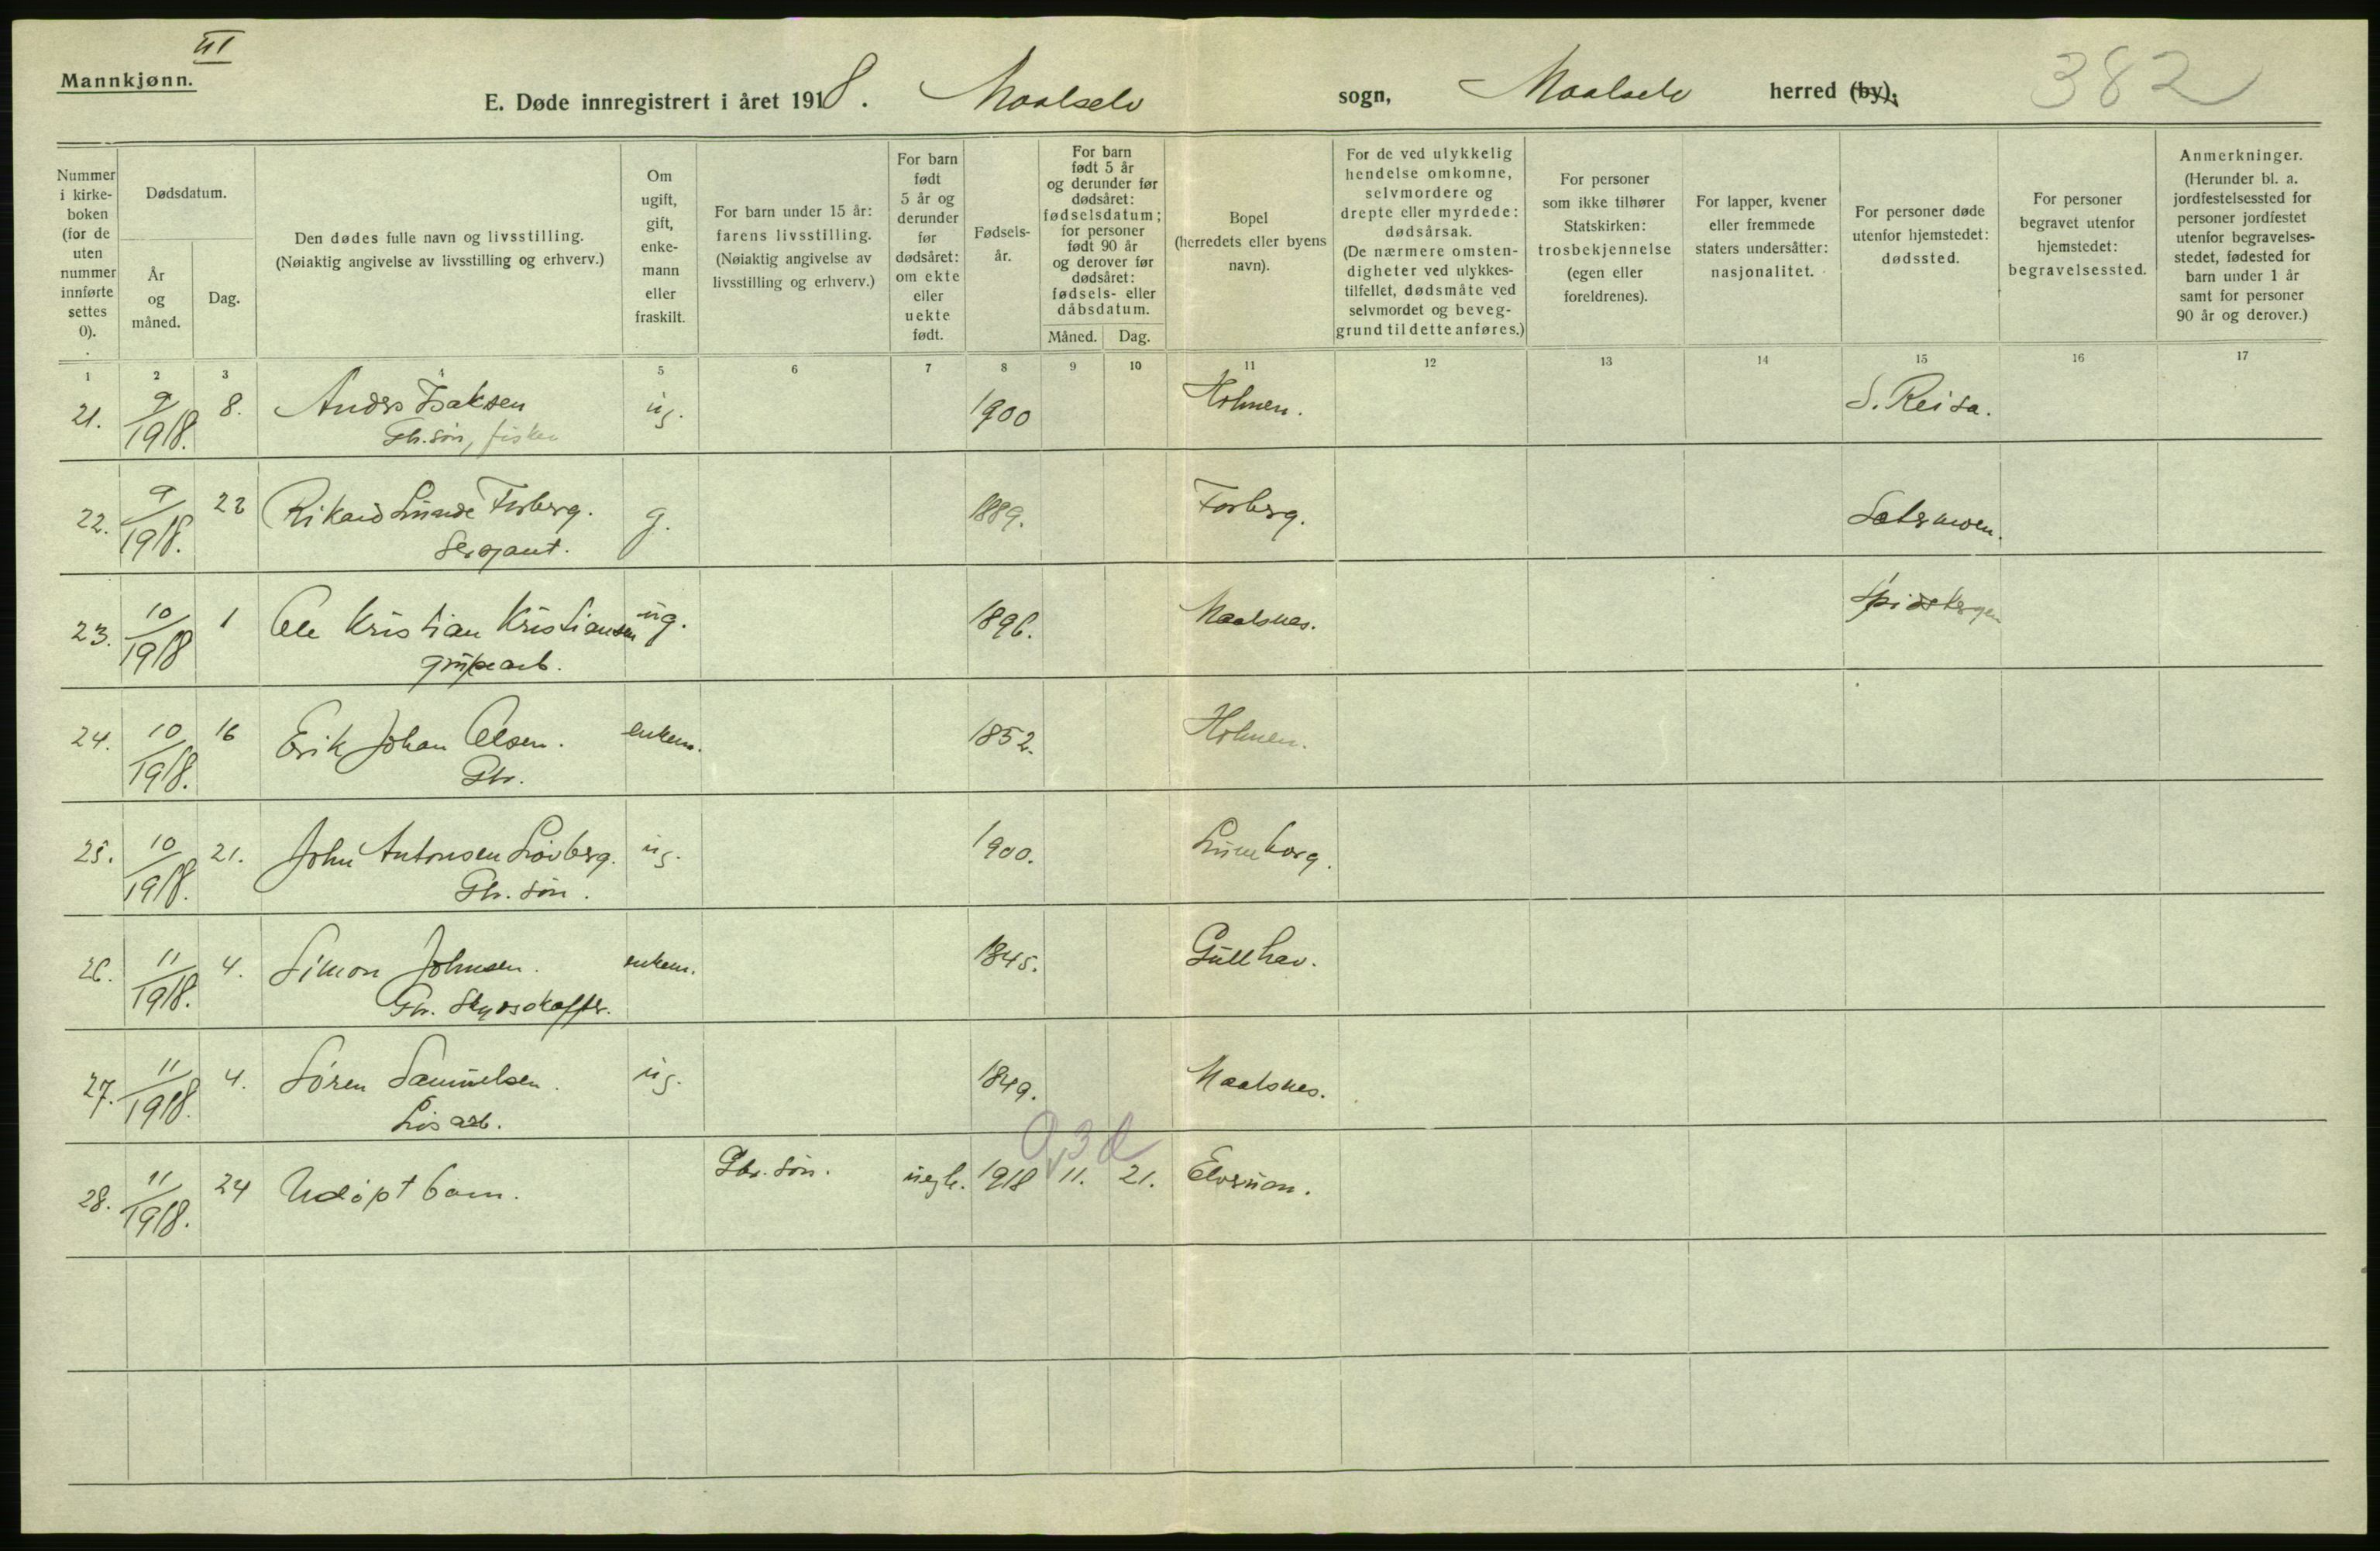 III
Mannkjønn.
E. Døde innregistrert i året 1918. Maalselv sogn, Maalselv herred (by).
382
Nummer i kirke- boken (for de uten nummer innførte settes 0).
Dødsdatum.
År og måned.
Dag.
Den dødes fulle navn og livsstilling.
(Nøiaktig angivelse av livsstilling og erhverv.)
Om ugift, gift, enke- mann eller fraskilt.
For barn under 15 år: farens livsstilling.
(Nøiaktig angivelse av livsstilling og erhverv.)
For barn født 5 år og derunder før dødsåret: om ekte eller uekte født.
Fødsels- år.
For barn født 5 år og derunder før dødsåret: fødselsdatum; for personer født 90 år og derover før dødsåret: fødsels- eller dåbsdatum.
Måned. Dag.
Bopel (herredets eller byens navn).
For de ved ulykkelig hendelse omkomne, selvmordere og drepte eller myrdede: dødsårsak.
(De nærmere omsten- digheter ved ulykkes- tilfellet, dødsmåte ved selvmordet og beveg- grund til dette anføres.)
For personer som ikke tilhører Statskirken: trosbekjennelse (egen eller foreldrenes).
For lapper, kvener eller fremmede staters undersåtter: nasjonalitet.
For personer døde utenfor hjemstedet: dødssted.
For personer begravet utenfor hjemstedet: begravelsessted.
Anmerkninger.
(Herunder bl. a. jordfestelsessted for personer jordfestet utenfor begravelses- stedet, fødested for barn under 1 år samt for personer 90 år og derover.)
1 2 3 4 5 6 7 8 9 10 11 12 13 14 15 16 17
21. 9/1918. 8. Anders Isaksen ug. 1900 Holmen. S. Reisa.
Gbr. søn, fisker
22. 9/1918. 22 Rikard Lunde Fosberg. g. 1889. Fosberg. Sætermoen.
Sergant.
23. 10/1918 1 Ole Kristian Kristiansen ug. 1896. Maalsnes. Spidsbergen
grupearb.
24. 10/1918. 16 Erik Johan Olsen. enkem. 1852. Holmen.
Gbr.
25. 10/1918. 21. John Antonsen Løvberg. ug. 1900. Luneborg.
Gbr. søn.
26. 11/1918. 4. Simon Johnsen. enkem. 1845. Gullhav.
Gbr. Skydsskaffer.
27. 11/1918. 4. Søren Samuelsen. ug. 1849. Maalsnes.
Løsarb.
0,3 d
28. 11/1918. 24 Udøpt barn. Gbr. søn. uegte. 1918 11. 21. Elverum.